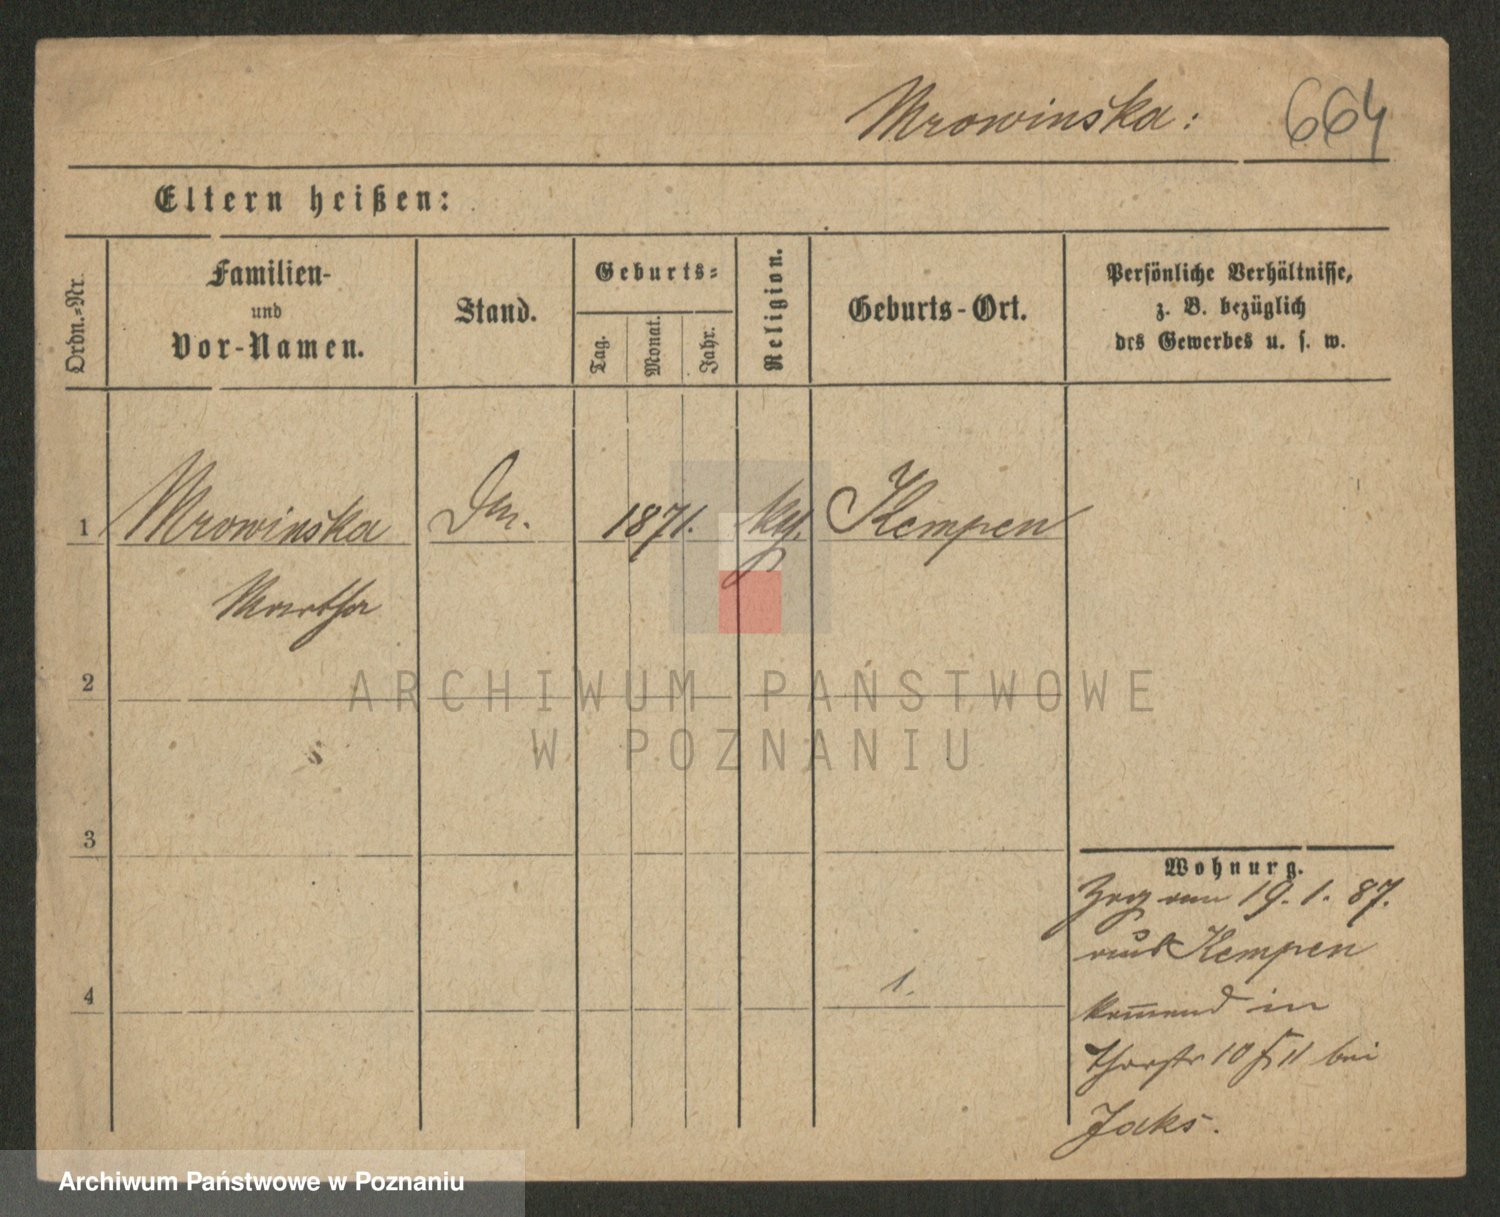 Mrowinska:
664
Eltern heißen:
Ordn.-Nr.
Familien-
und
Vor-Namen.
Stand.
Geburts-
Tag.
Monat.
Jahr.
Religion.
Geburts-Ort.
Persönliche Verhältnisse,
z. B. bezüglich
des Gewerbes u. s. w.
1 Mrowinska 1871. Kempen
Martha
2
ARCHIWUM PAŃSTWOWE
W POZNANIU
3
Wohnung.
19. 1. 87.
aus Kempen
4
1.
kommend in
Thorstr 10/11 bei
Jaks.
Archiwum Państwowe w Poznaniu